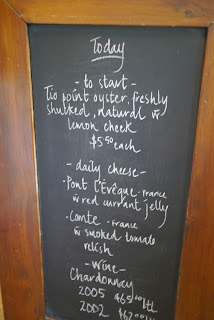 Today
- to start -
Tio point oyster, freshly
shucked, natural w
lemon cheek
$5.50 each
- daily cheese -
· Pont l'Evêque · France
w red currant jelly
· Comte - France
w smoked tomato
relish
- Wine -
Chardonnay
2005 $65.00 btl
2002